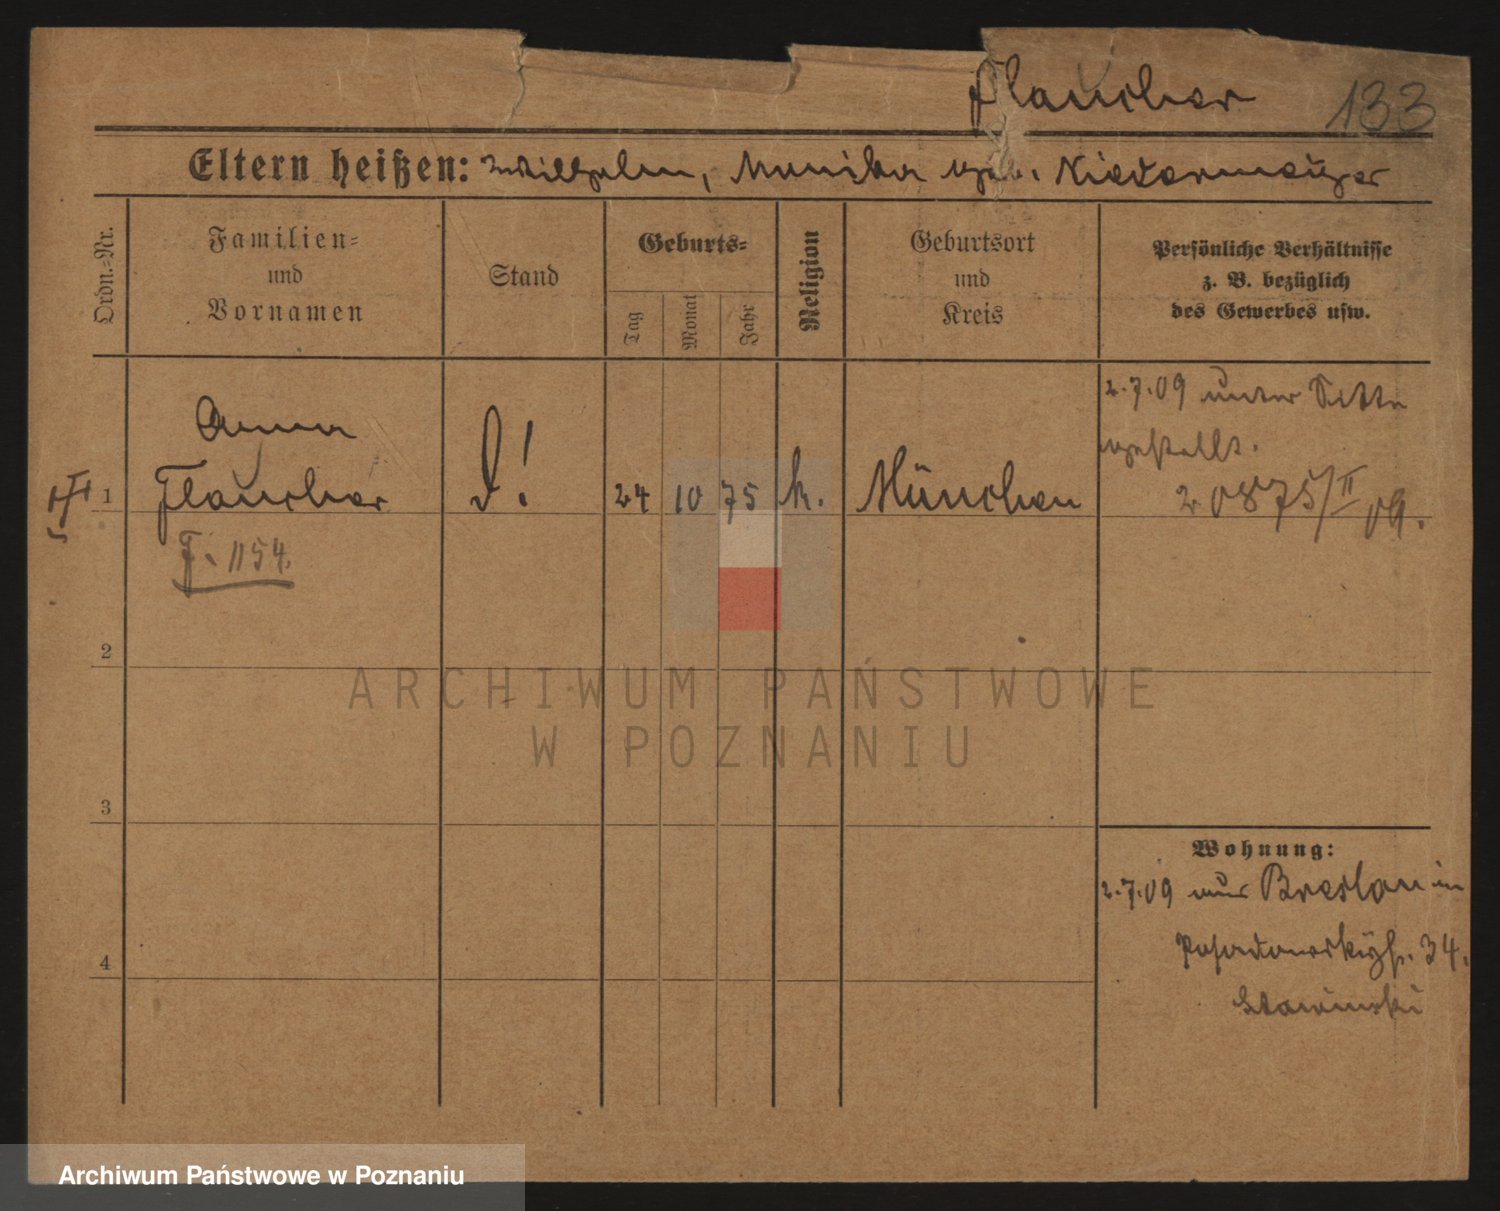 Flaucher 133
Eltern heißen: Wilhelm, Monika geb. Niedermeyer
Ordn.-Nr.
Familien-
und
Vornamen
Stand
Geburts-
Tag
Monat
Jahr
Religion
Geburtsort
und
Kreis
Persönliche Verhältnisse
z. B. bezüglich
des Gewerbes usw.
2.7.09 unter Sitte
gestellt.
20875/II 09.
Anna
1 Flaucher
24 10 75 k. München
F. 1154.
2
3
4
Wohnung:
2.7.09 aus Breslau in
34.
ARCHIWUM PAŃSTWOWE
W POZNANIU
Archiwum Państwowe w Poznaniu